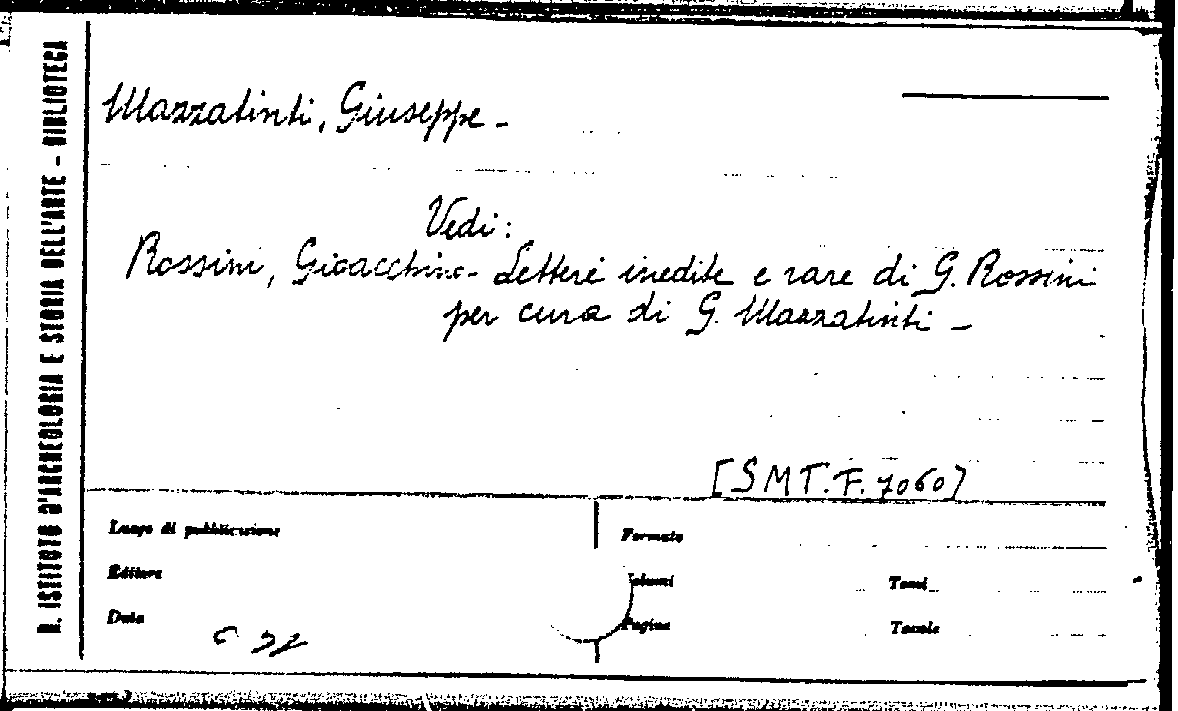 R. ISTITUTO D'ARCHEOLOGIA E STORIA DELL'ARTE - BIBLIOTECA
Mazzatinti, Giuseppe -
Vedi:
Rossini, Gioacchino - Lettere inedite e rare di G. Rossini
per cura di G. Mazzatinti -
[SMT.F.7060]
Luogo di pubblicazione
Formato
Editore
Volumi
Tomi
Data
Pagine
Tavole